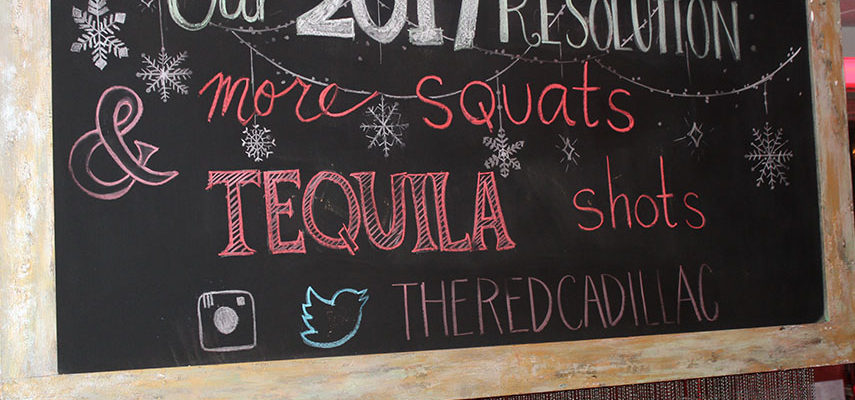 Our 2017 RESOLUTION
more squats
& TEQUILA shots
THEREDCADILLAC